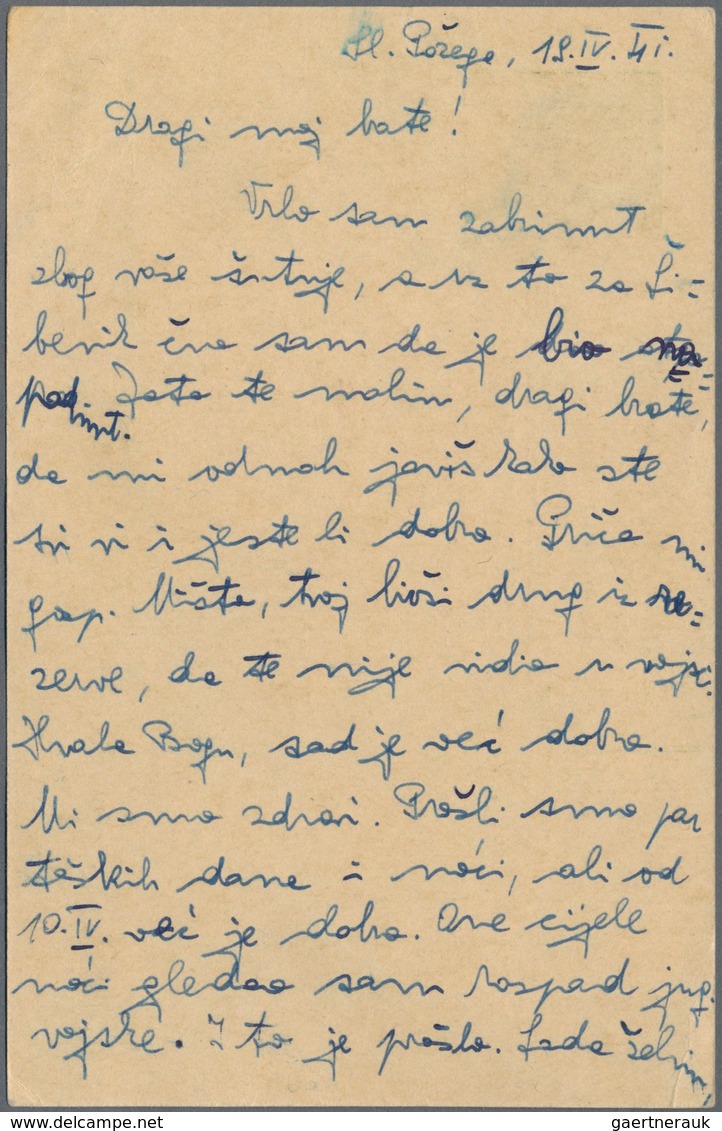 Sl. Požega, 19.IV.41.
Dragi moj bato!
Vrlo sam zabrinut
zbog vaše šutnje, a uz to za Ši=
benik čuo sam da je bio na=
padnut. Zato te molim, dragi brate,
da mi odmah javiš kako ste
svi vi i jeste li dobro. Priča mi
gosp. Mišta, tvoj bivši drug iz re=
zerve, da te nije vidio u vojsci.
Hvala Bogu, sad je već dobro.
Mi smo zdravi. Prošli smo par
teških dana i noći, ali od
10.IV. već je dobro. Ove cijele
noći gledao sam raspad jug.
vojske. I to je prošlo. Sada želim,
gaertnerauk